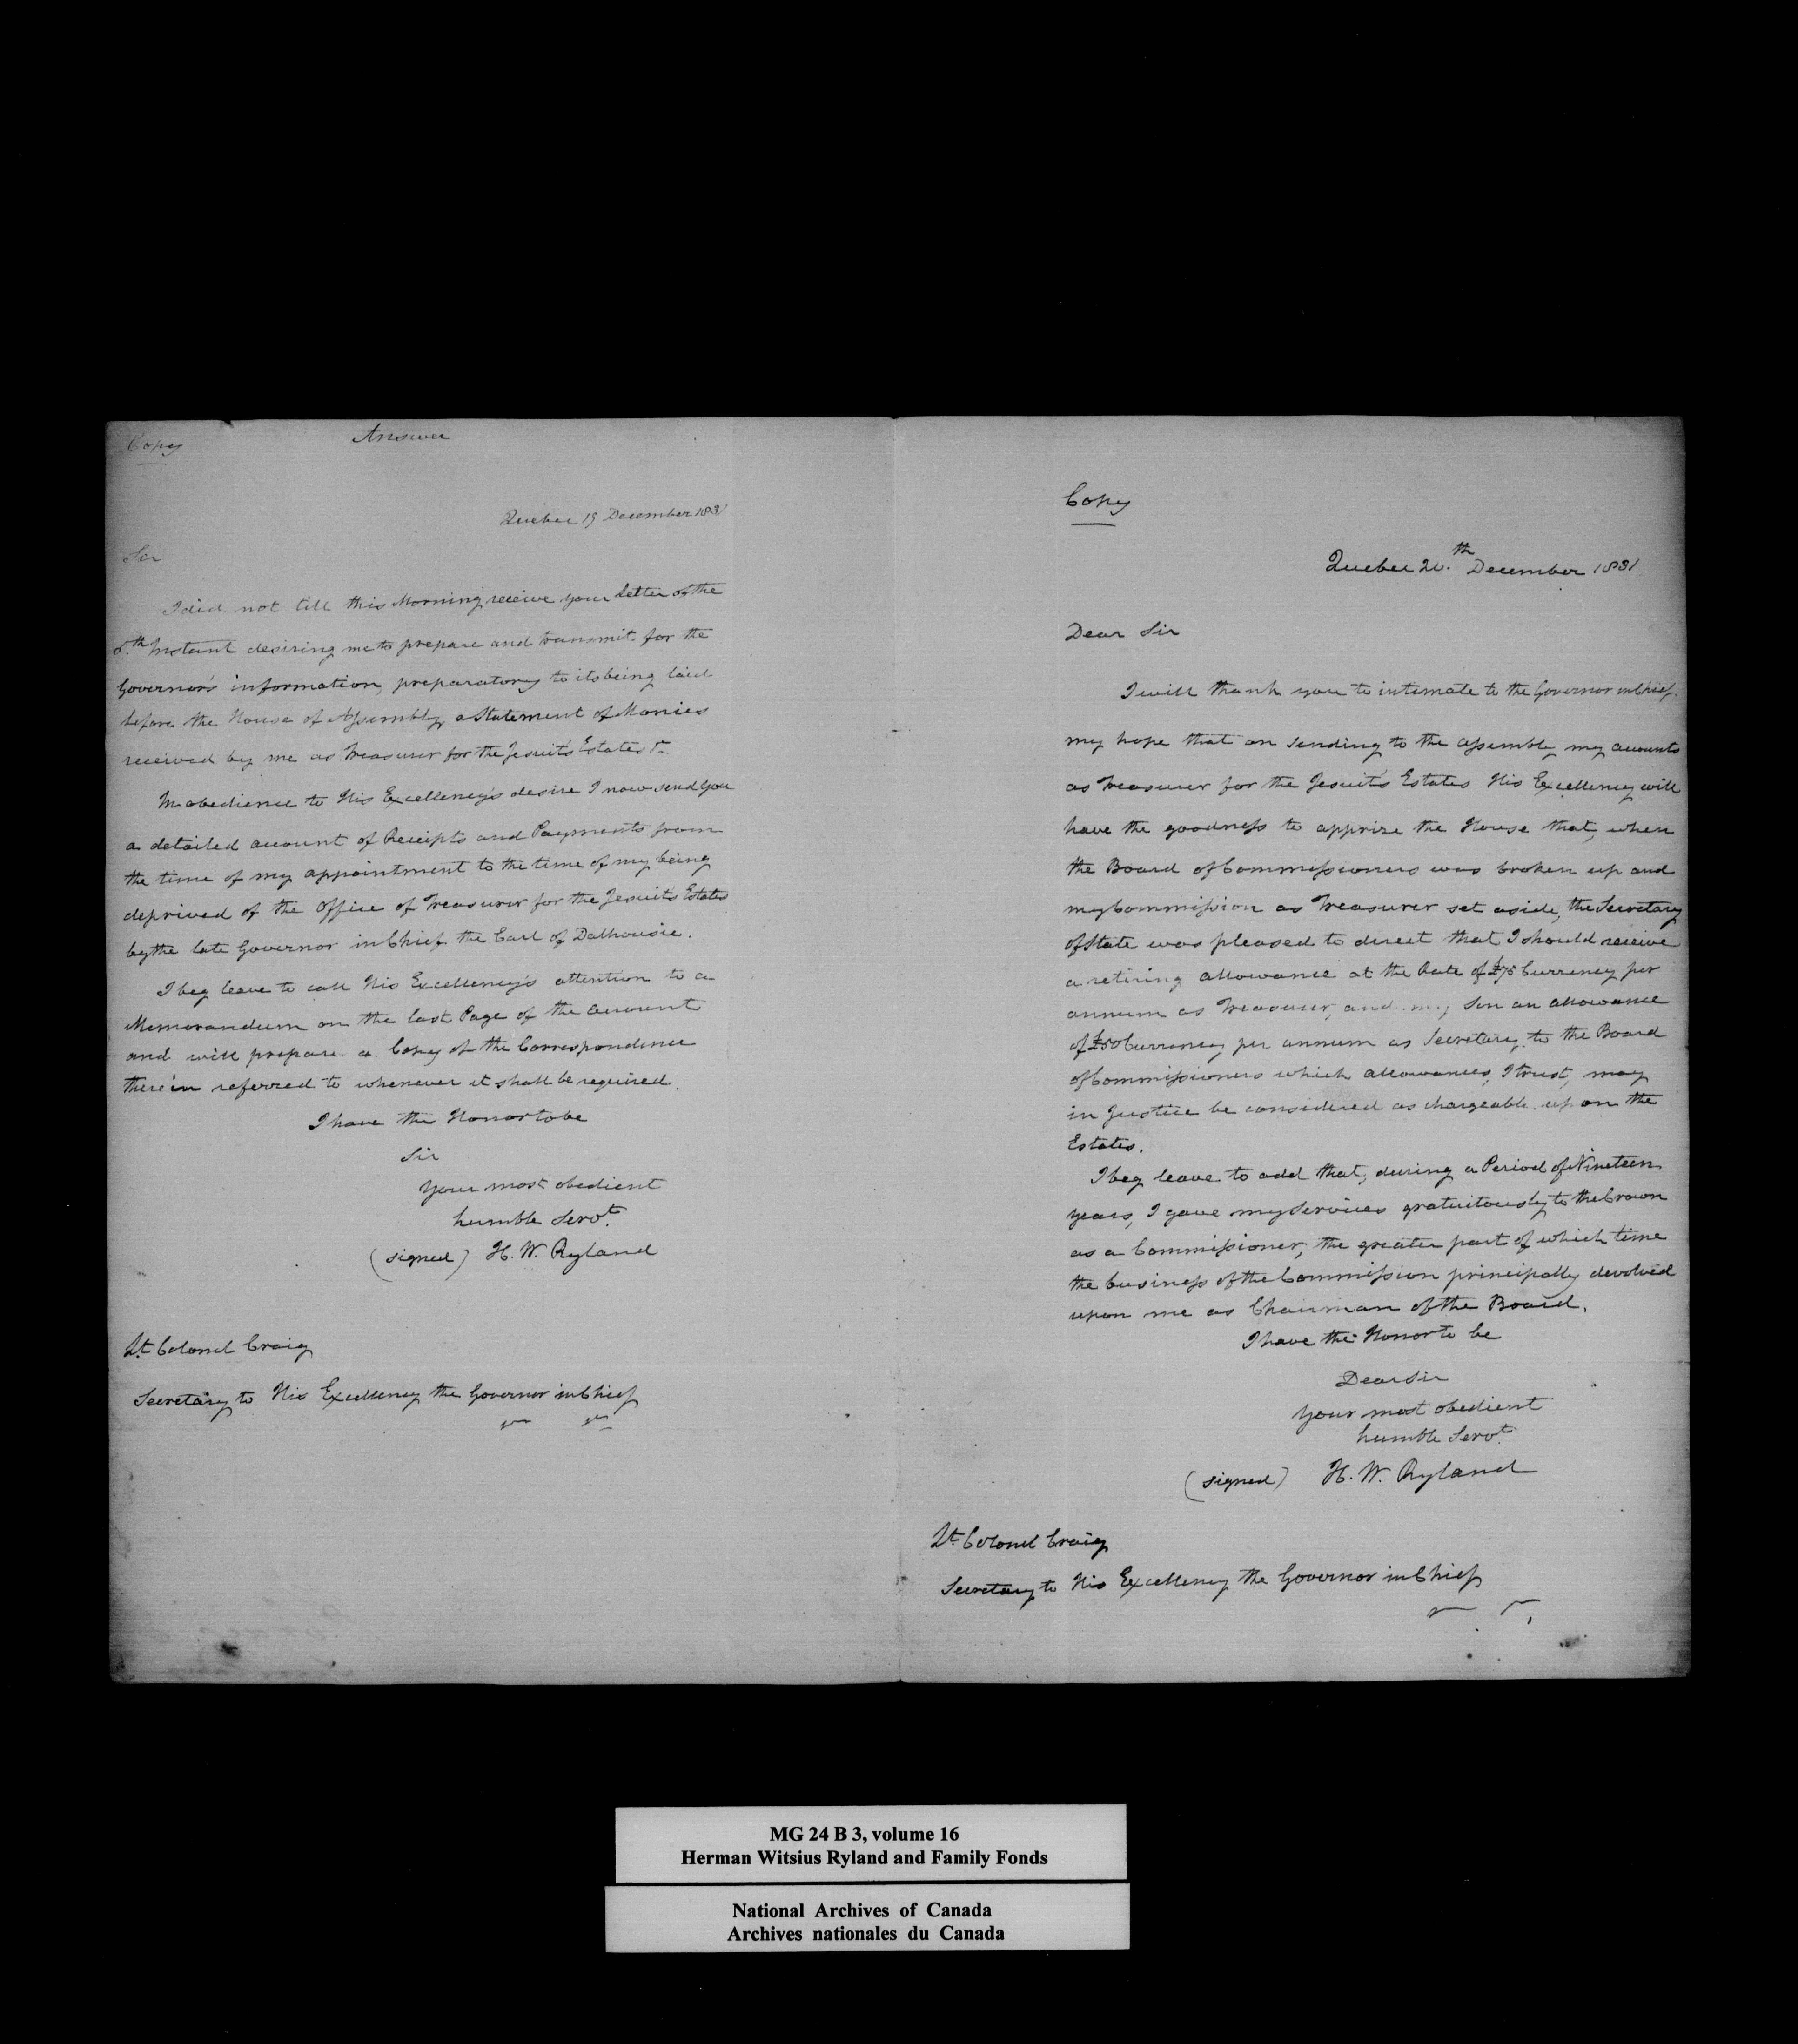 Copy
Answer
Quebec 19 December 1831
Sir
I did not till this Morning receive your Letter of the
5.th Instant desiring me to prepare and transmit for the
Governor's information, preparatory to its being laid
before the House of Assembly, a Statement of Monies
received by me as Treasurer for the Jesuit's Estates &c
In obedience to His Excellency's desire I now send you
a detailed account of Receipts and Payments from
the time of my appointment to the time of my being
deprived of the Office of Treasurer for the Jesuit's Estates
by the late Governor in Chief the Earl of Dalhousie.
I beg leave to call His Excellency's attention to a
Memorandum on the last Page of the account
and will prepare a Copy of the Correspondence
therein referred to whenever it shall be required.
I have the Honor to be
Sir
Your most obedient
humble Servt.
(signed) H. W. Ryland
Lt. Colonel Craig
Secretary to His Excellency the Governor in Chief
&c &c
Copy
Quebec 20.th December 1831
Dear Sir
I will thank you to intimate to the Governor in Chief,
my hope that on sending to the Assembly my accounts
as Treasurer for the Jesuit's Estates His Excellency will
have the goodness to apprize the House that, when
the Board of Commissioners was broken up and
my Commission as Treasurer set aside, the Secretary
of State was pleased to direct that I should receive
a retiring allowance at the Rate of £75 Currency per
annum as Treasurer, and my Son an allowance
of £50 Currency per annum as Secretary to the Board
of Commissioners which allowances, I trust, may
in Justice be considered as chargeable upon the
Estates.
I beg leave to add that, during a Period of Nineteen
years, I gave my Services gratuitously to the Crown
as a Commissioner, the greater part of which time
the business of the Commission principally devolved
upon me as Chairman of the Board.
I have the Honor to be
Dear Sir
Your most obedient
humble Servt.
(signed) H. W. Ryland
Lt. Colonel Craig
Secretary to His Excellency the Governor in Chief
&c &c
MG 24 B 3, volume 16
Herman Witsius Ryland and Family Fonds
National Archives of Canada
Archives nationales du Canada